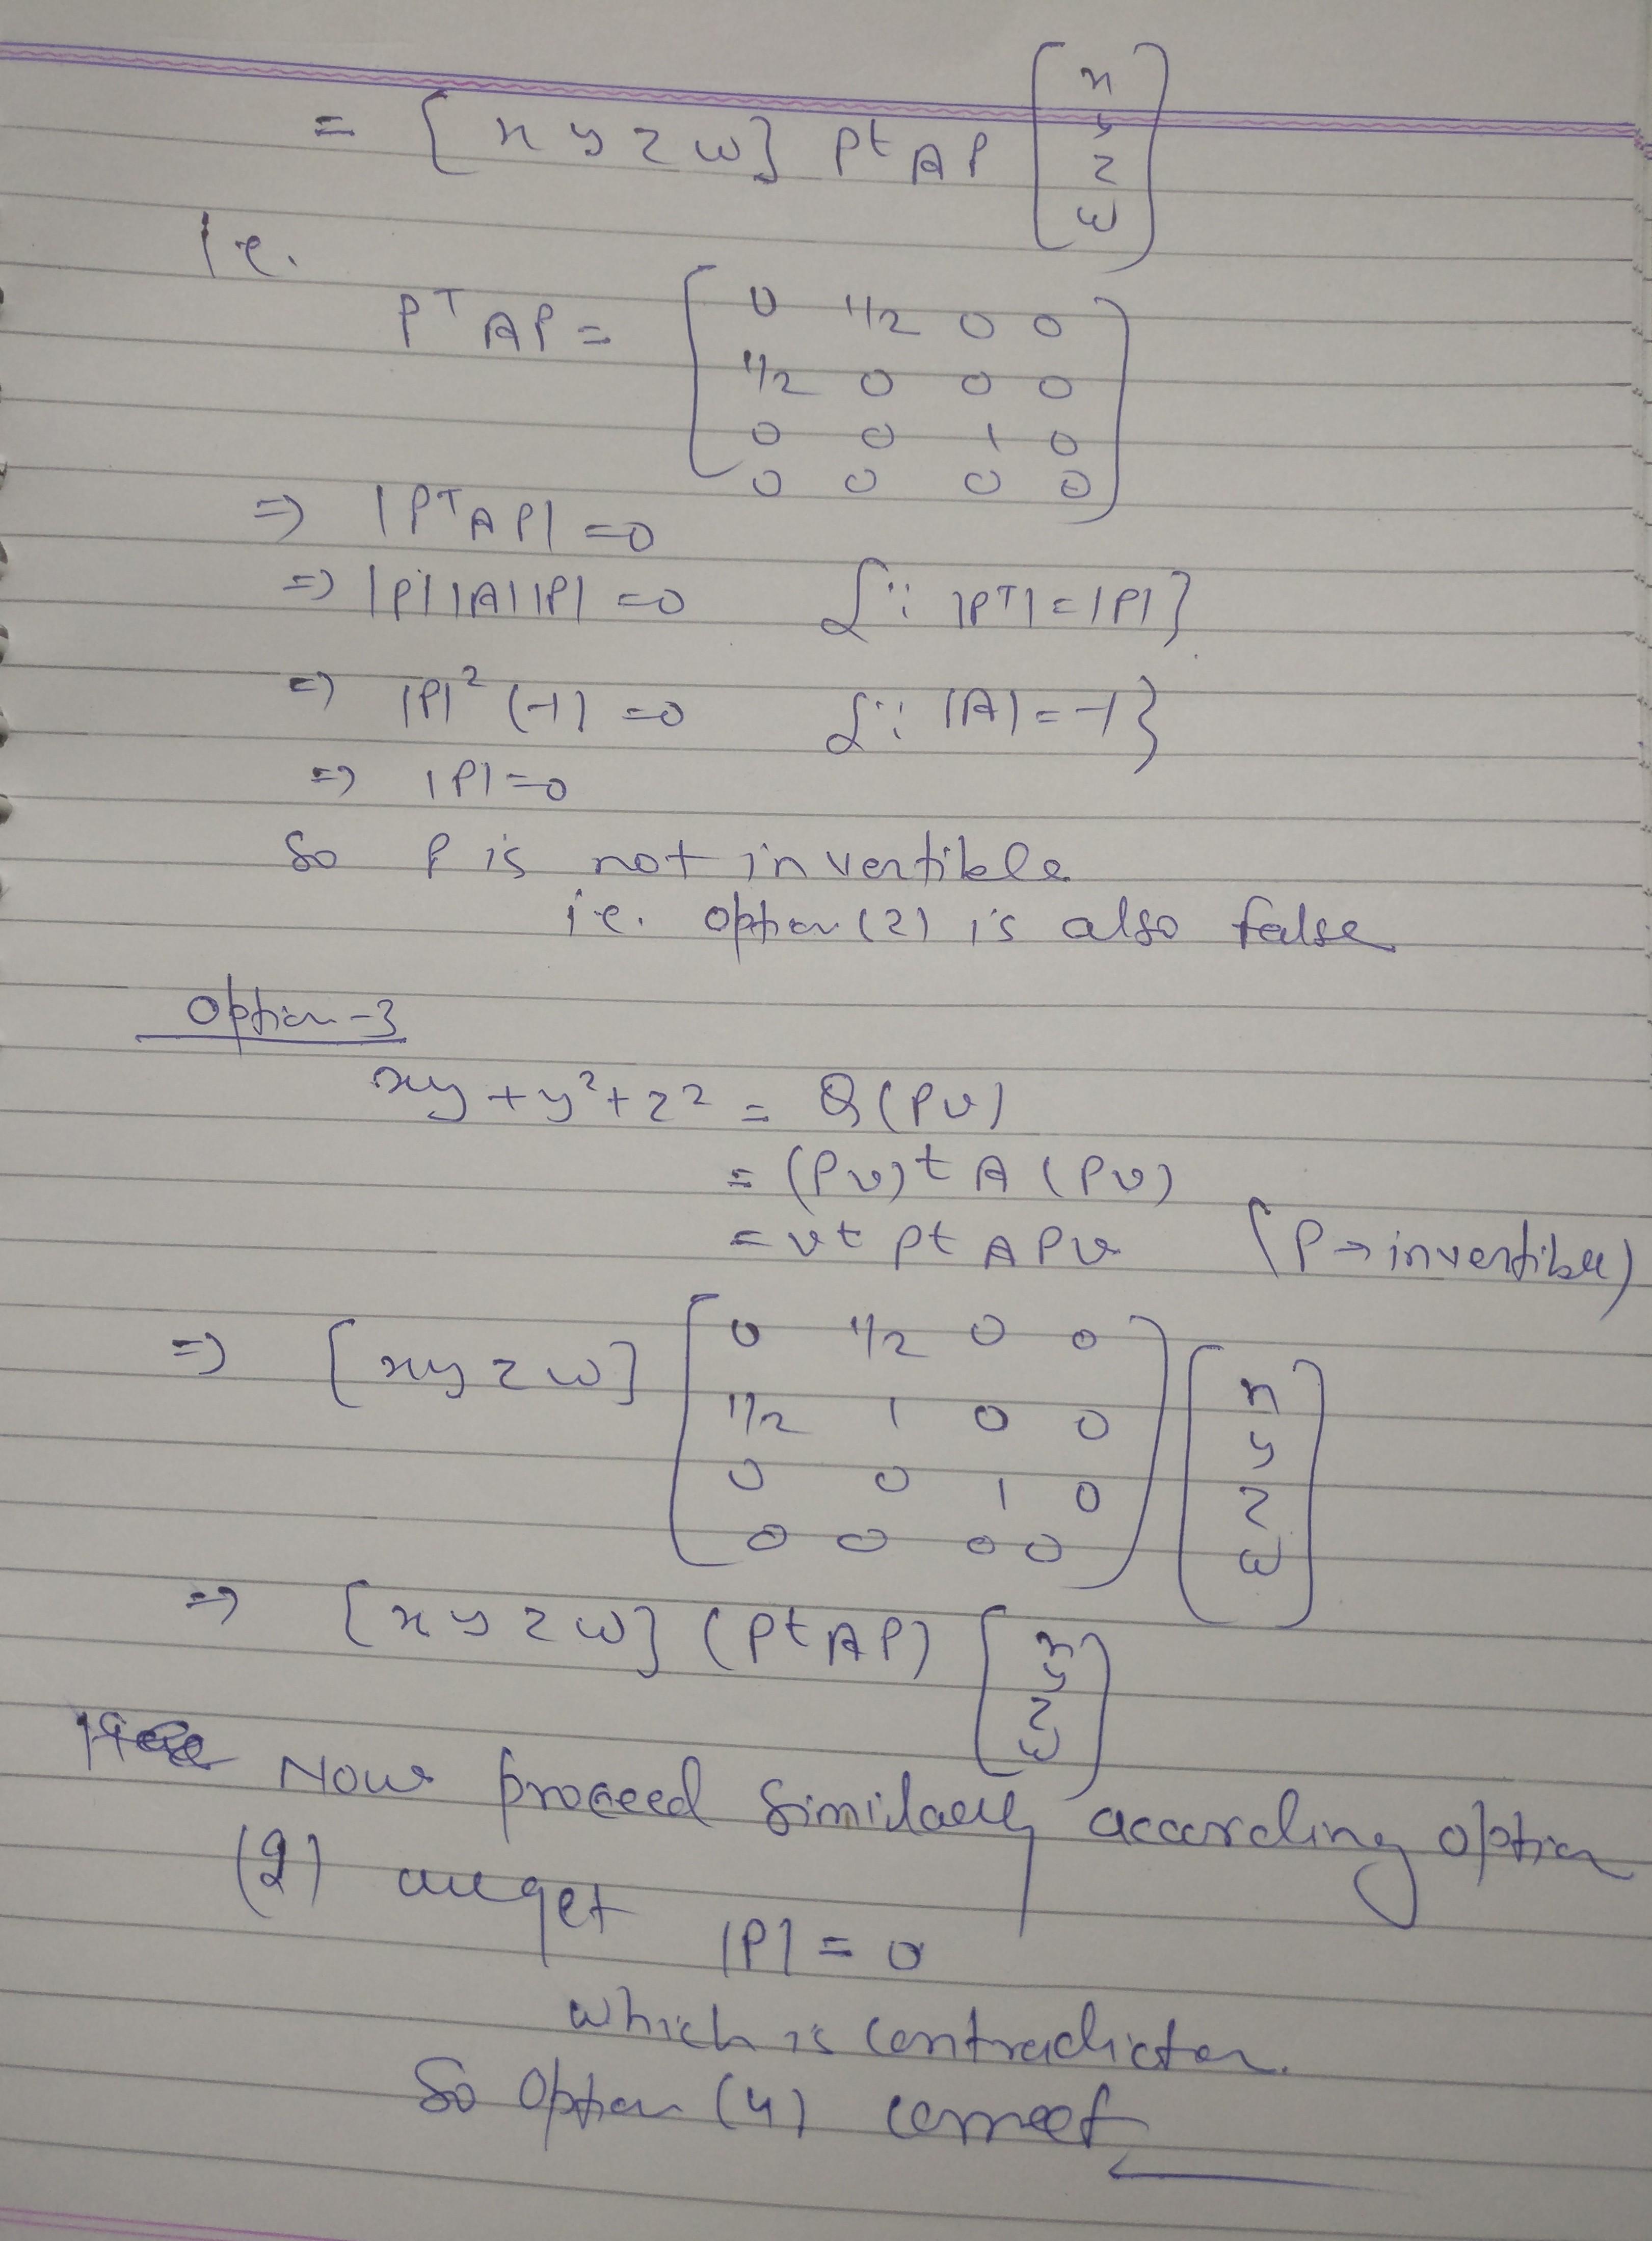 = [x y z w] Pt AP [x
y
z
w]
Ie.
PT AP = [0 1/2 0 0
1/2 0 0 0
0 0 1 0
0 0 0 0]
⇒ |PT AP| = 0
⇒ |P| |A| |P| = 0 {∵ |PT| = |P|}
⇒ |P|² (-1) = 0 {∵ |A| = -1}
⇒ |P| = 0
So P is not invertible
ie. option (2) is also false
Option-3
xy + y² + z² = Q(Pv)
= (Pv)t A (Pv)
= vt Pt A P v (P → invertible)
⇒ [x y z w] [0 1/2 0 0
1/2 1 0 0
0 0 1 0
0 0 0 0] [x
y
z
w]
⇒ [x y z w] (Pt AP) [x
y
z
w]
Now proceed similarly according option
(2) we get
|P| = 0
which is contradiction.
So option (4) correct